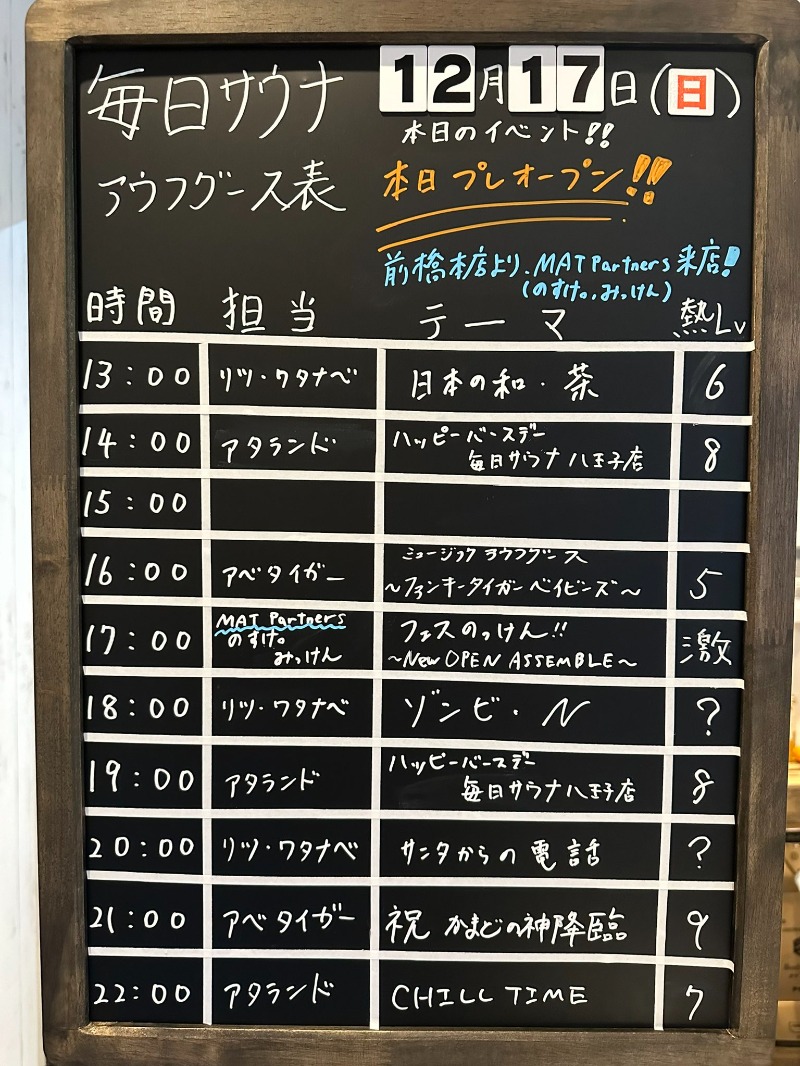 毎日サウナ
アウフグース表
12月17日(日)
本日のイベント!!
本日プレオープン!!
前橋本店より、MAT Partners 来店!
(のすけ。、みっけん)
時間 担当 テーマ 熱Lv
13:00 リツ・ワタナベ 日本の和・茶 6
14:00 アタランド ハッピーバースデー
毎日サウナ八王子店 8
15:00
16:00 アベタイガー ミュージックアウフグース
~ファンキータイガーベイビーズ~ 5
17:00 MAT Partners
のすけ。
みっけん
フェスのっけん!!
~New OPEN ASSEMBLE~ 激
18:00 リツ・ワタナベ ゾンビ・N ?
19:00 アタランド ハッピーバースデー
毎日サウナ八王子店 8
20:00 リツ・ワタナベ サンタからの電話 ?
21:00 アベタイガー 祝 かまどの神降臨 9
22:00 アタランド CHILL TIME 7